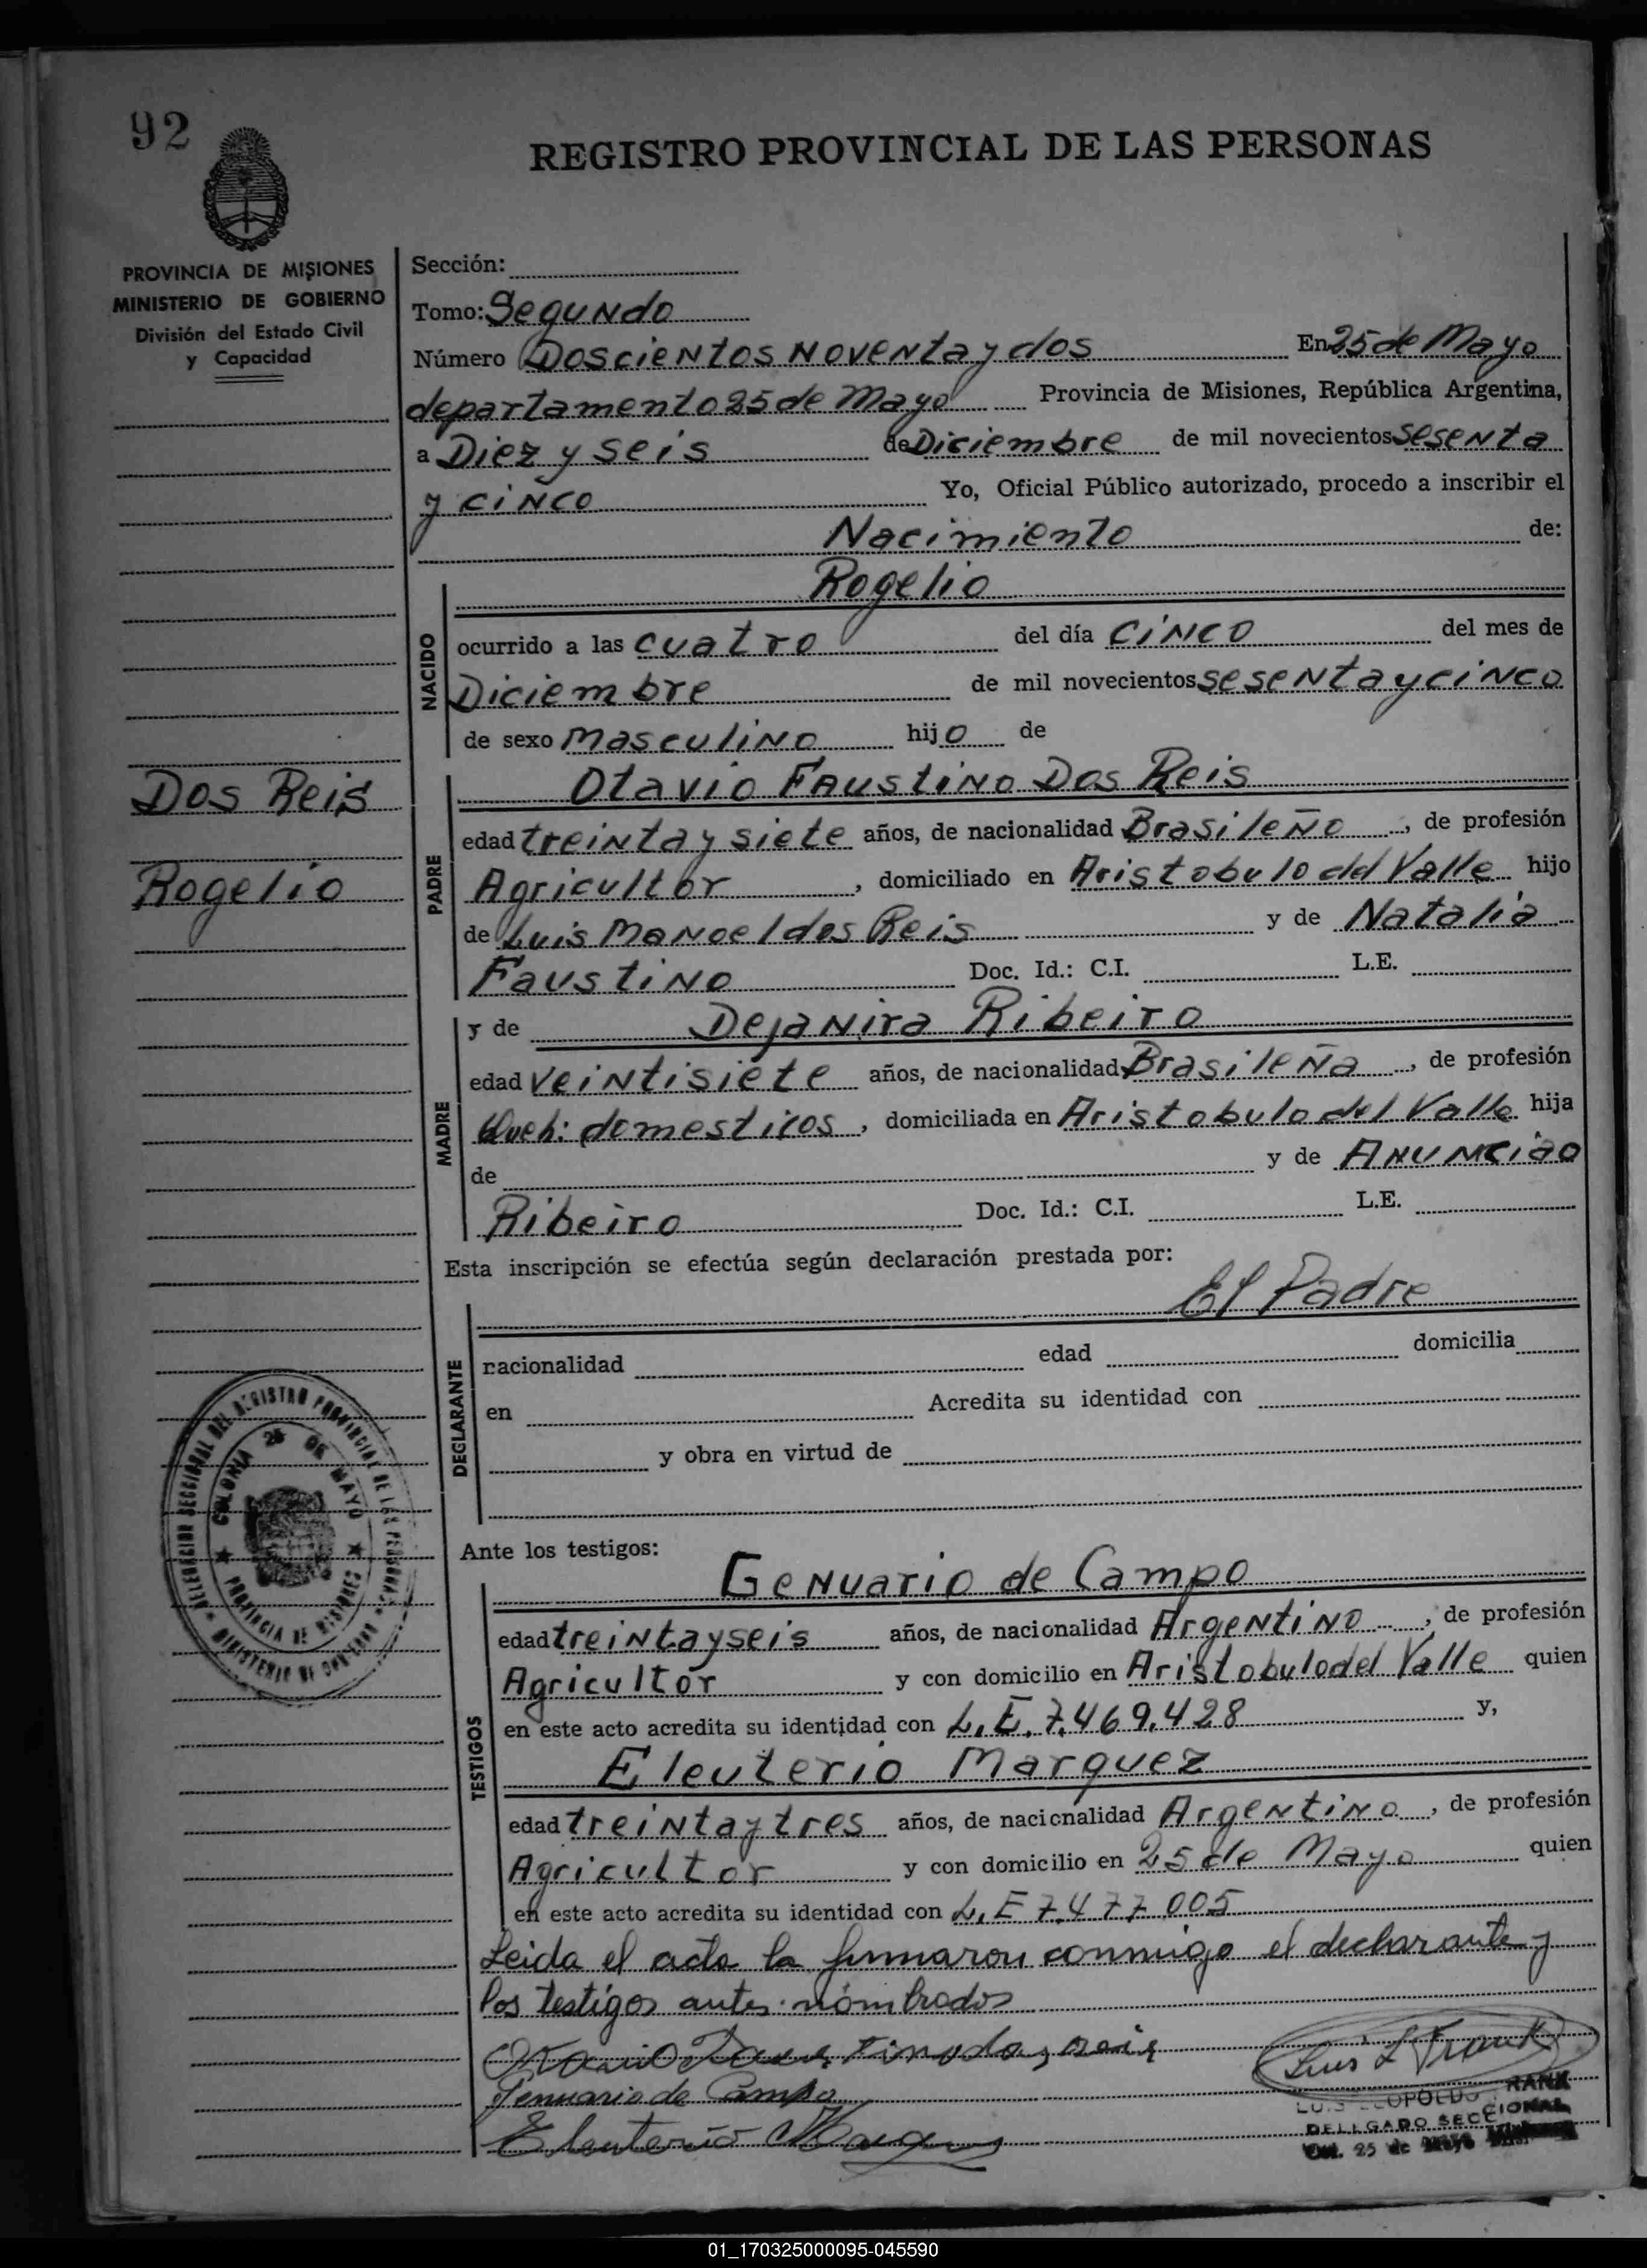 92
REGISTRO PROVINCIAL DE LAS PERSONAS
PROVINCIA DE MISIONES
MINISTERIO DE GOBIERNO
División del Estado Civil
y Capacidad
Sección:
Tomo: Segundo
Número Doscientos Noventa y dos En 25 de Mayo
departamento 25 de Mayo Provincia de Misiones, República Argentina,
a Diez y seis de Diciembre de mil novecientos sesenta
y cinco Yo, Oficial Público autorizado, procedo a inscribir el
Nacimiento de:
Rogelio
NACIDO
ocurrido a las cuatro del día cinco del mes de
Diciembre de mil novecientos sesenta y cinco
de sexo masculino hijo de
Dos Reis
Rogelio
PADRE
Otavio Faustino Dos Reis
edad treinta y siete años, de nacionalidad Brasileño, de profesión
Agricultor, domiciliado en Aristobulo del Valle hijo
de Luis Manoel dos Reis y de Natalia
Faustino Doc. Id.: C.I. L.E.
MADRE
y de Dejanira Ribeiro
edad veintisiete años, de nacionalidad Brasileña, de profesión
Queh: domesticos, domiciliada en Aristobulo del Valle hija
de y de Anunciao
Ribeiro Doc. Id.: C.I. L.E.
Esta inscripción se efectúa según declaración prestada por:
El Padre
DECLARANTE
nacionalidad edad domicilia
en Acredita su identidad con
y obra en virtud de
DELEGACION SECCIONAL DEL REGISTRO PROVINCIAL DE LAS PERSONAS
MINISTERIO DE GOBIERNO
COLONIA 25 DE MAYO
PROVINCIA DE MISIONES
Ante los testigos:
TESTIGOS
Genuario de Campo
edad treinta y seis años, de nacionalidad Argentino, de profesión
Agricultor y con domicilio en Aristobulo del Valle quien
en este acto acredita su identidad con L.E. 7.469.428 y,
Eleuterio Marquez
edad treinta y tres años, de nacionalidad Argentino, de profesión
Agricultor y con domicilio en 25 de Mayo quien
en este acto acredita su identidad con L.E 7.477.005
Leida el acta la firmaron conmigo el declarante y
los testigos antes nombrados
Otavio Faustino dos reis
Luis L Frank
Jenuario de Campo
LUIS LEOPOLDO FRANK
DELEGADO SECCIONAL
Col. 25 de Mayo
Eleuterio Marquez
01_170325000095-045590